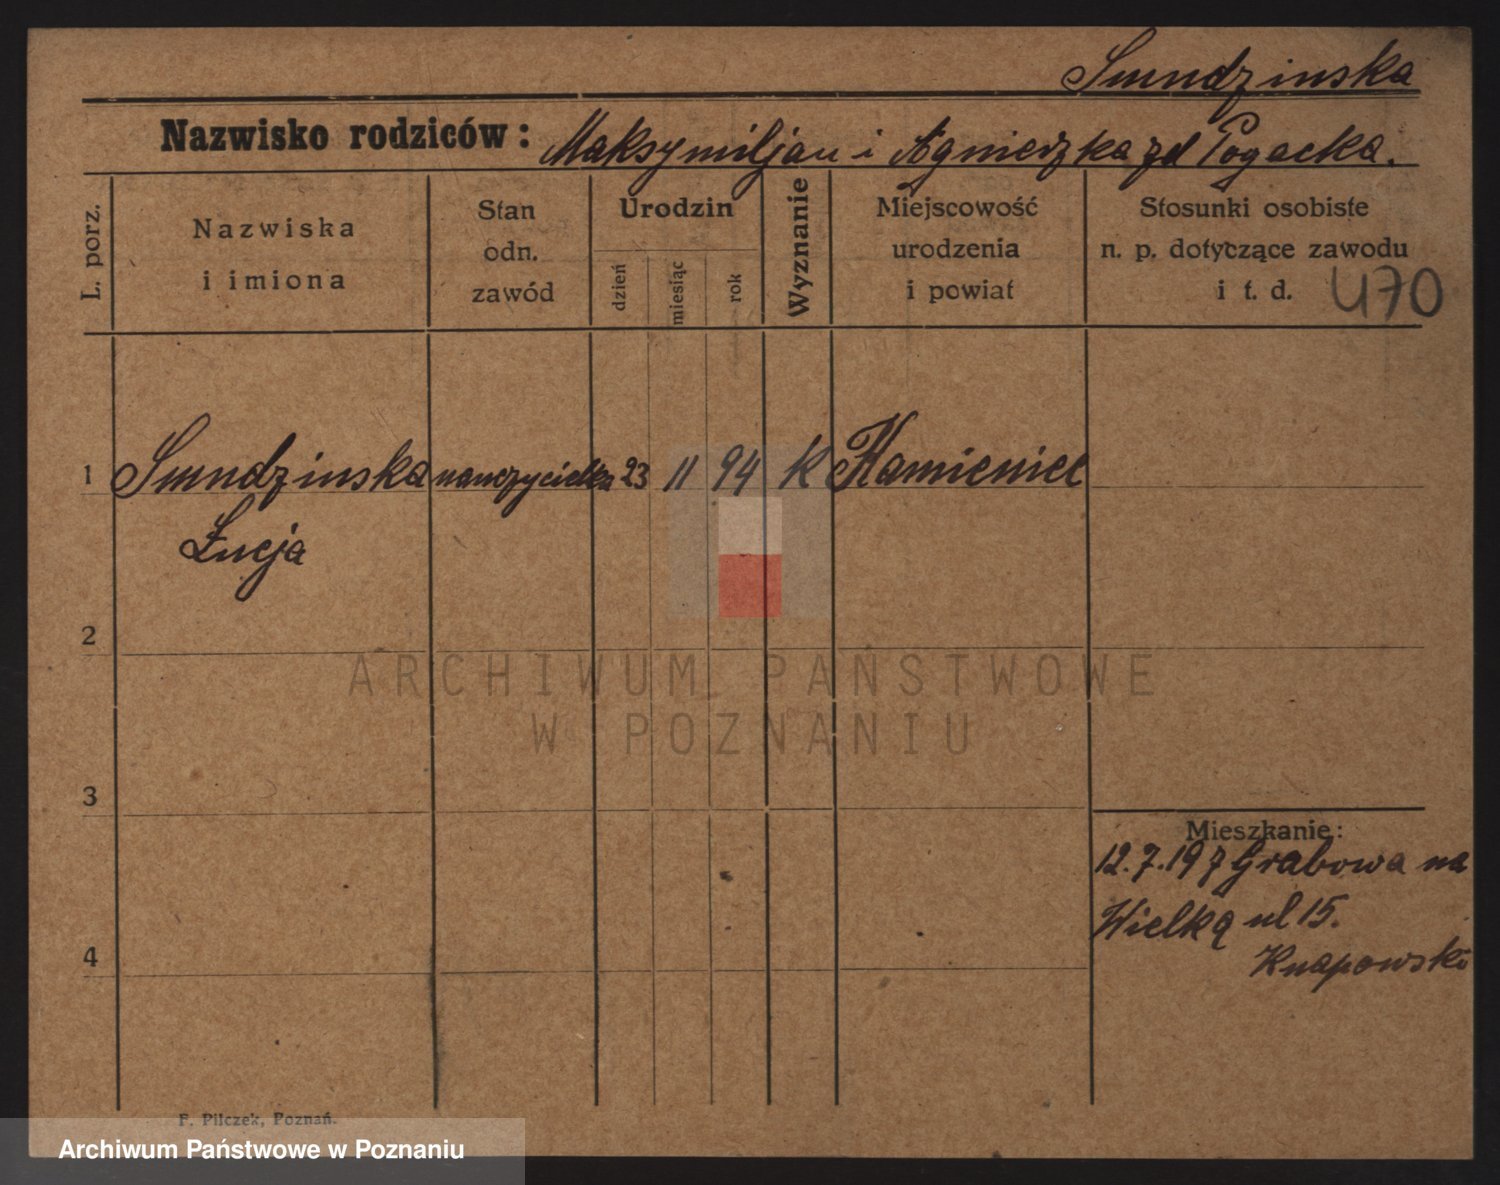 Smudzinska
Nazwisko rodziców: Maksymiljan i Agnieszka zd Pogacka.
L. porz.
Nazwiska
i imiona
Stan
odn.
zawód
Urodzin
dzień
miesiąc
rok
Wyznanie
Miejscowość
urodzenia
i powiat
Stosunki osobiste
n. p. dotyczące zawodu
i t. d.
470
1 Smudzinska nauczycielka 23 11 94 k Kamieniec
Łucja
2
3
4
Mieszkanie:
12.7.197 Grabowa na
Wielką ul 15.
Knapowski
ARCHIWUM PAŃSTWOWE
W POZNANIU
F. Pilczek, Poznań.
Archiwum Państwowe w Poznaniu